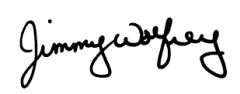 Jimmy Wolfrey